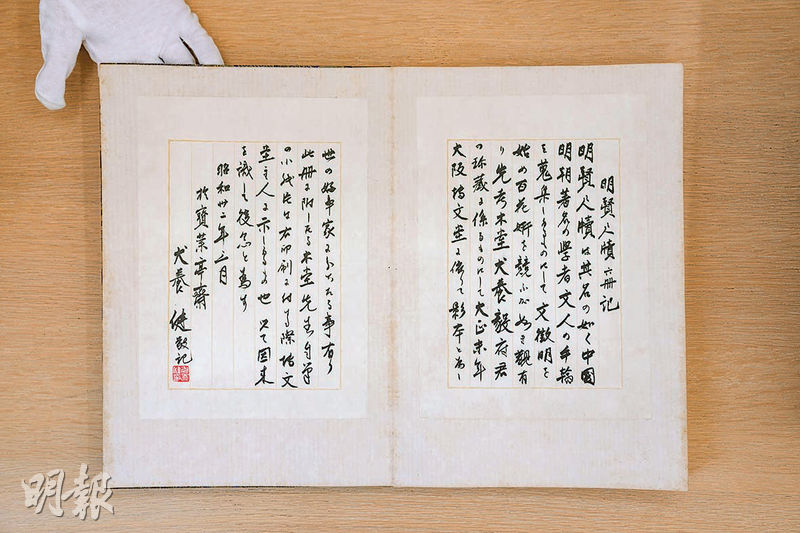 明賢尺牘 六册記
明賢尺牘は其名の如く中國
明朝著名の學者文人の手翰
を蒐集したるものにして文徴明を
始め百花妍を競ふが如き観有
り先考木堂犬養毅府君
の珍蔵に係るものにして大正末年
大阪博文堂に依て影本と為し
世の好事家にわかちたる事有り
此册に附したる木堂先生自筆
の小
片は右印刷に付する際博文
堂主人に示したるもの也 以て因来
を識し後念と為す
昭和卅二年三月
於寶
亭齋
犬養健敬記
明報